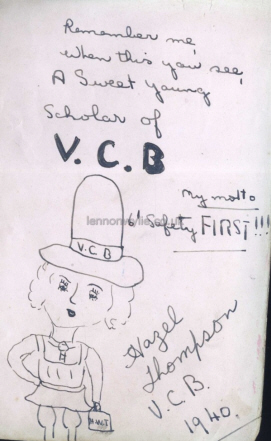 Remember me
when this you see,
A Sweet young
Scholar of
V.C.B
My motto
"Safety FIRST!!!
V.C.B
Hazel
Thompson
V.C.B.
1940.